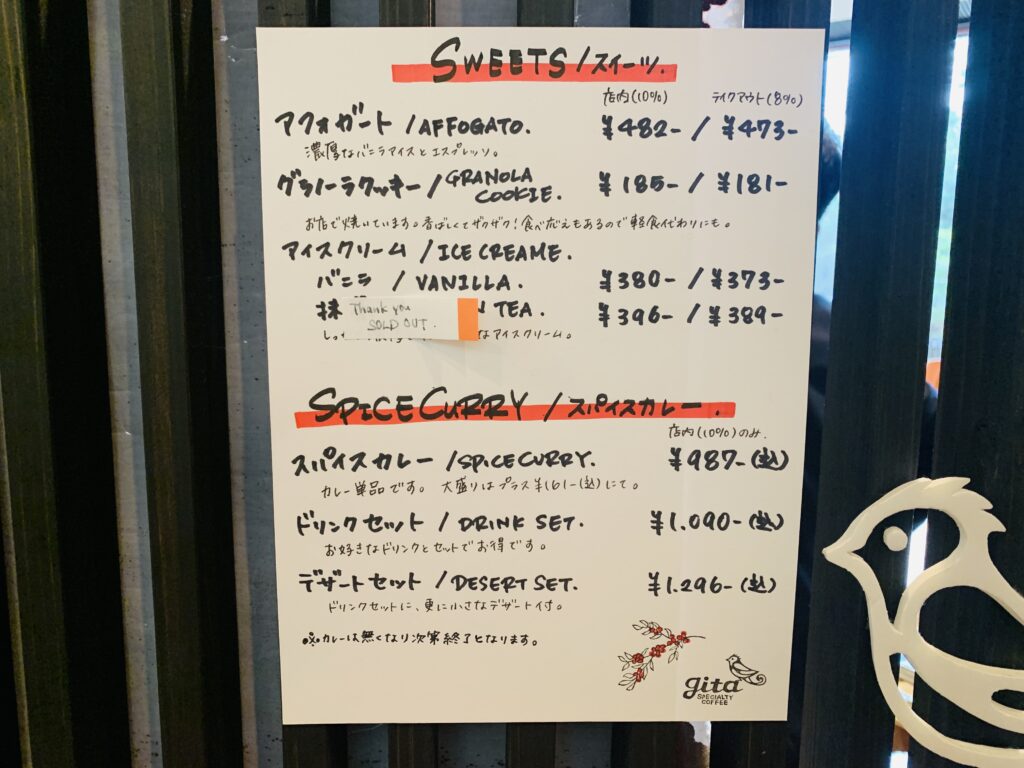 SWEETS / スイーツ.
店内(10%) テイクアウト(8%)
アフォガート / AFFOGATO. ¥482- / ¥473-
濃厚なバニラアイスとエスプレッソ。
グラノーラクッキー / GRANOLA COOKIE. ¥185- / ¥181-
お店で焼いています。香ばしくてザクザク!食べ応えもあるので軽食代わりにも。
アイスクリーム / ICE CREAME.
バニラ / VANILLA. ¥380- / ¥373-
抹 TEA. ¥396- / ¥389-
Thank you
SOLD OUT.
なアイスクリーム。
SPICE CURRY / スパイスカレー.
店内(10%)のみ.
スパイスカレー / SPICE CURRY. ¥987-(込)
カレー単品です。 大盛りはプラス¥161-(込)にて。
ドリンクセット / DRINK SET. ¥1.090-(込)
お好きなドリンクとセットでお得です。
デザートセット / DESERT SET. ¥1.296-(込)
ドリンクセットに、更に小さなデザート付。
※カレーは無くなり次第終了となります。
gita
SPECIALTY
COFFEE